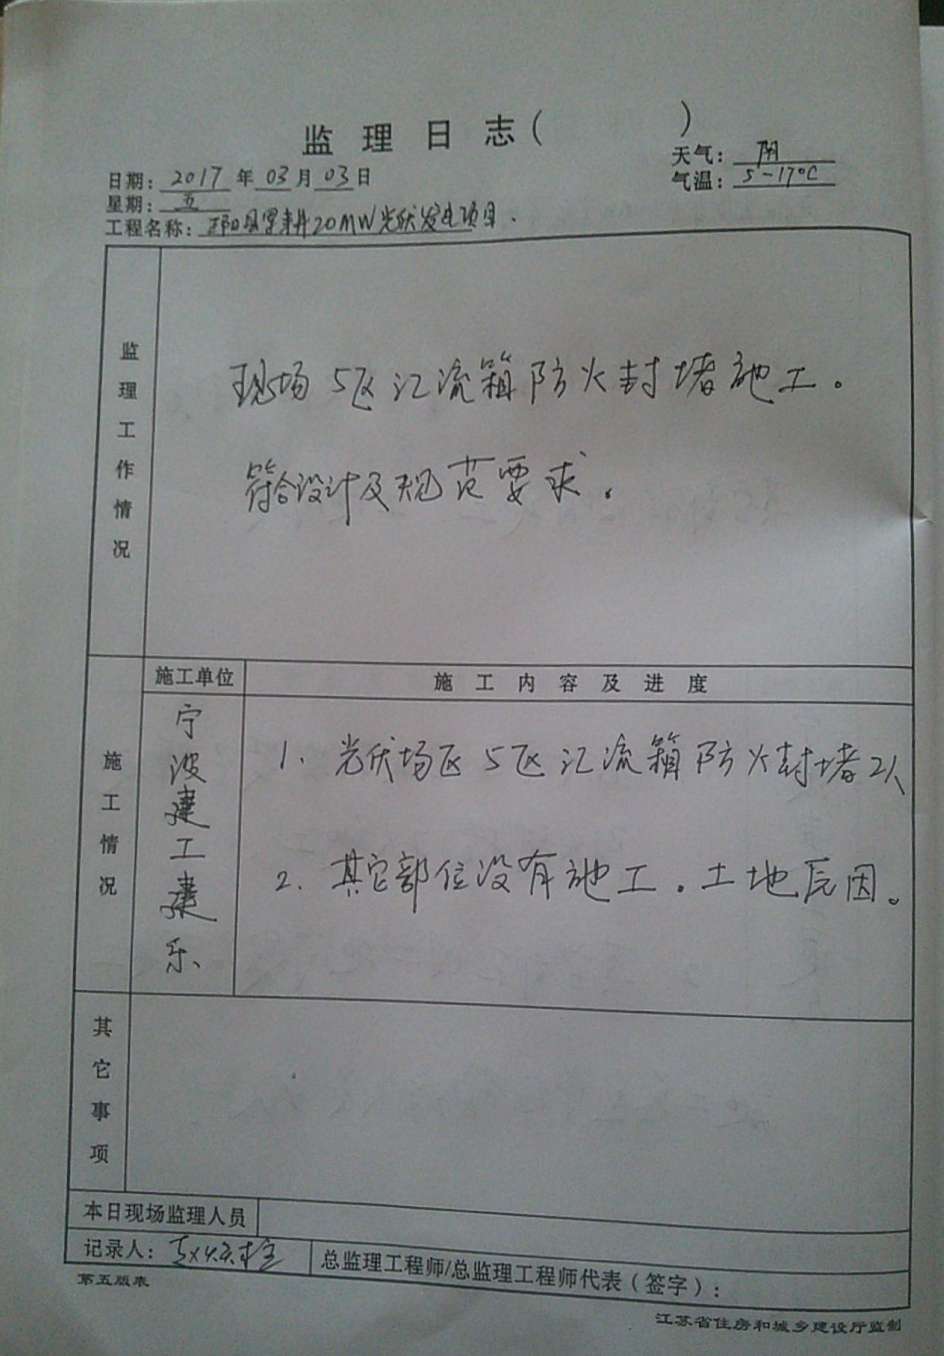 监理日志( )
天气: 阴
日期: 2017 年 03 月 03 日
气温: 5-17℃
星期: 五
工程名称: 20MW光伏发电项目.
监理工作情况
现场5区汇流箱防火封堵施工。
符合设计及规范要求。
施工单位
施工内容及进度
施工情况
宁波建工建乐
1. 光伏场区5区汇流箱防火封堵2人
2. 其它部位没有施工。土地原因。
其它事项
本日现场监理人员
记录人: 赵
总监理工程师/总监理工程师代表(签字):
第五版表
江苏省住房和城乡建设厅监制